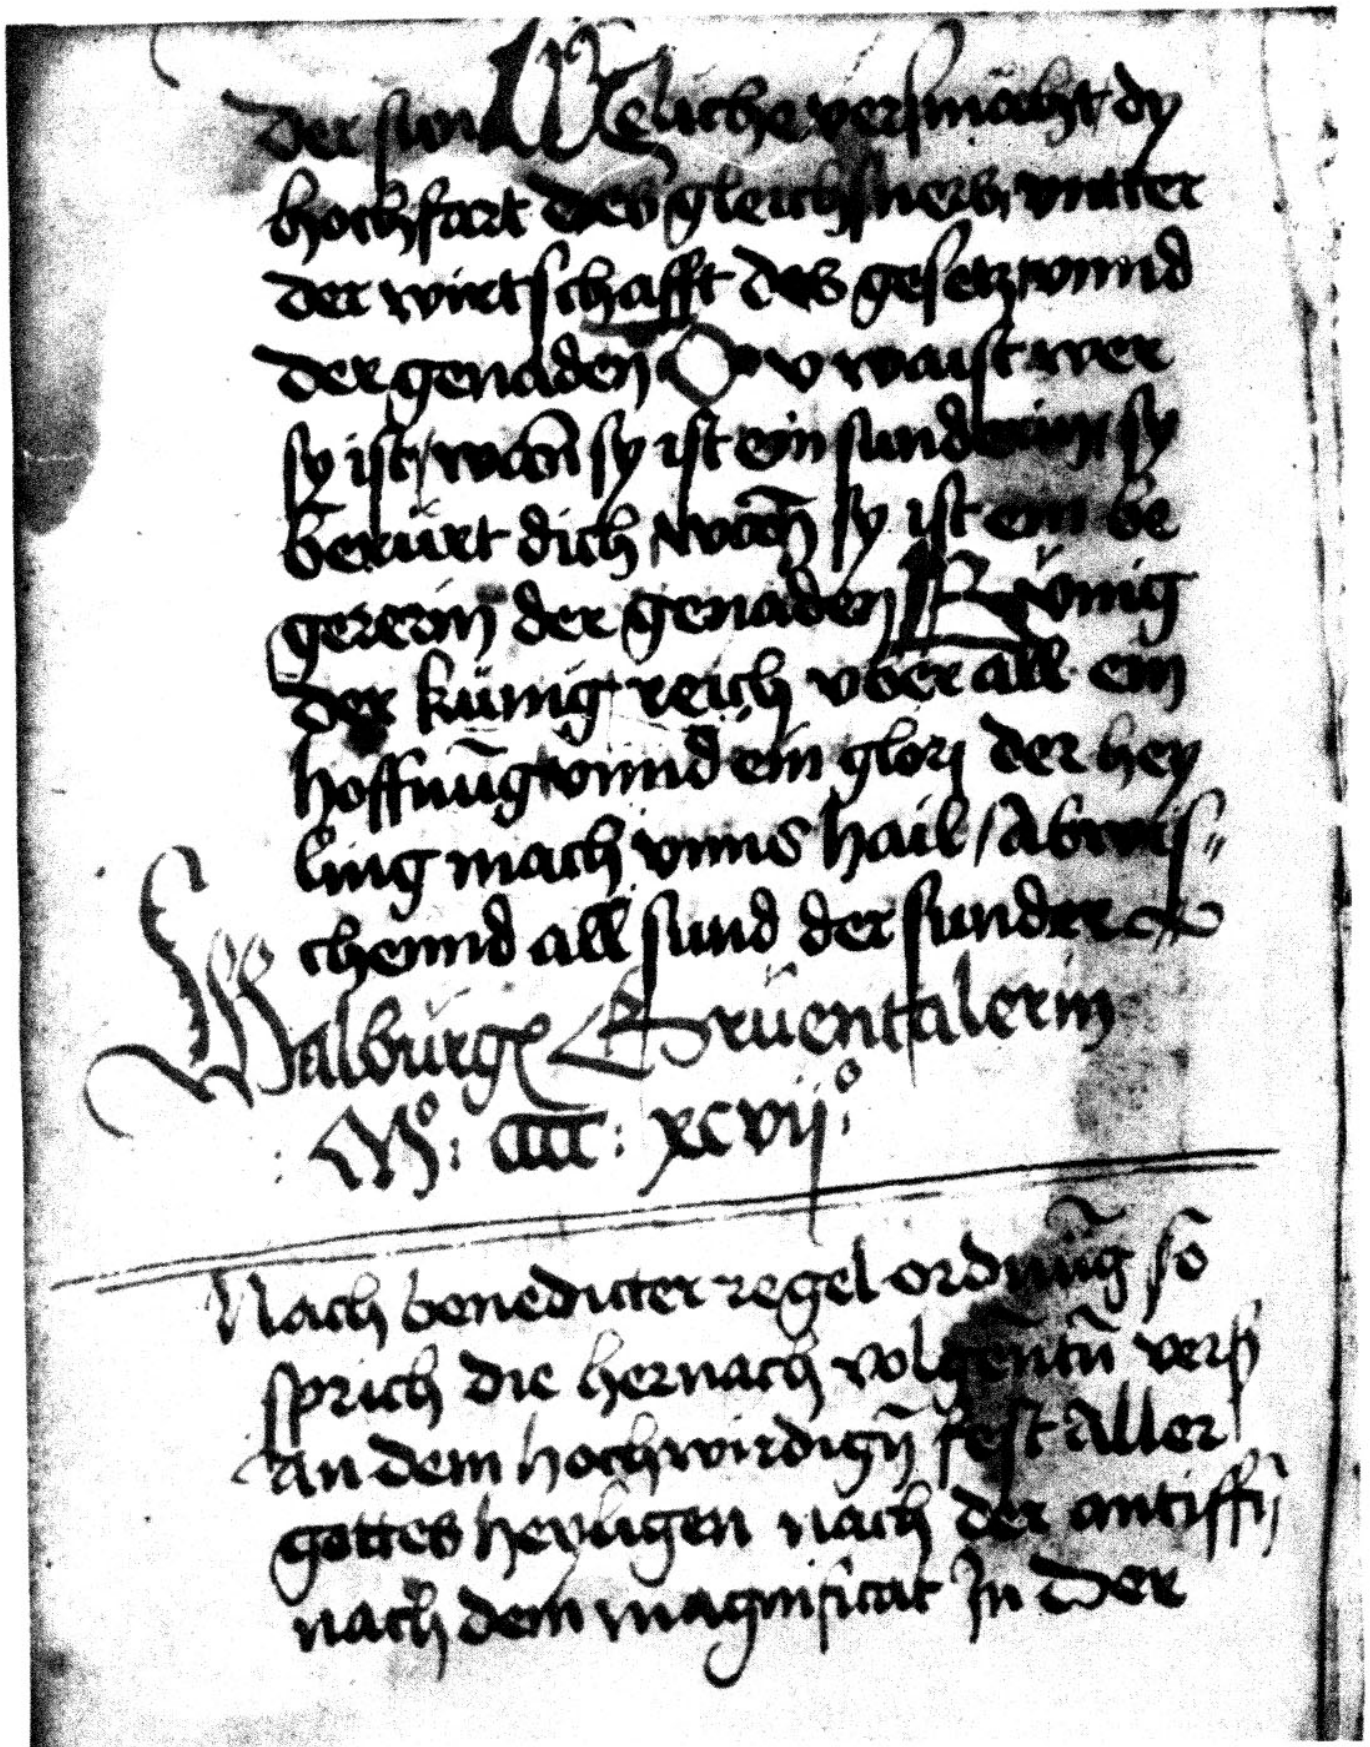 der sun Weliche versmächt dy
hochfart des gleichsners, vntter
der wirtschafft des gesetz vnnd
der genaden Dv waist wer
sy ist / wan̄ sy ist ein sunderin, sy
berürt dich, wan̄ sy ist ein be
gererin der genaden Künig
der künig reich vber all ein
hoffnūg vnnd ein glorj der hey
ling mach vnns hail / Abwis„
chennd all sünd der sunder
Walburg Grüentalerin
: Mº: cccc : xcvijº:
Nach benedicter regel ordnūg so
sprich die hernach volgēntn̄ vers
An dem hochwirdign̄ fest Aller
gottes heyligen nach der antiffn̄
nach dem magnificat In der